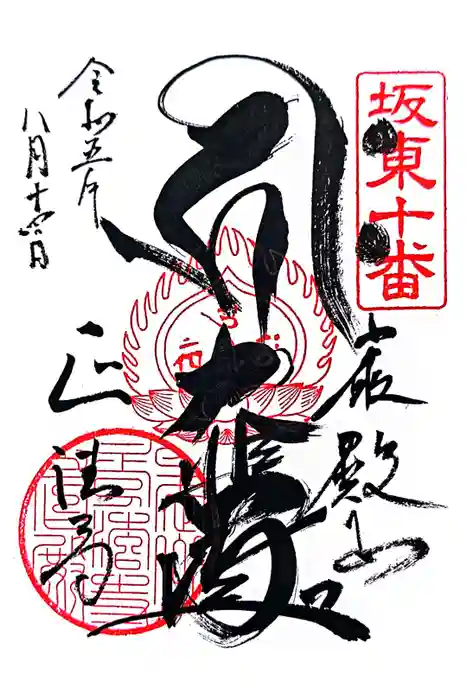 坂東十番
巌殿山
大悲殿
正法寺
令和五年
八月十六日